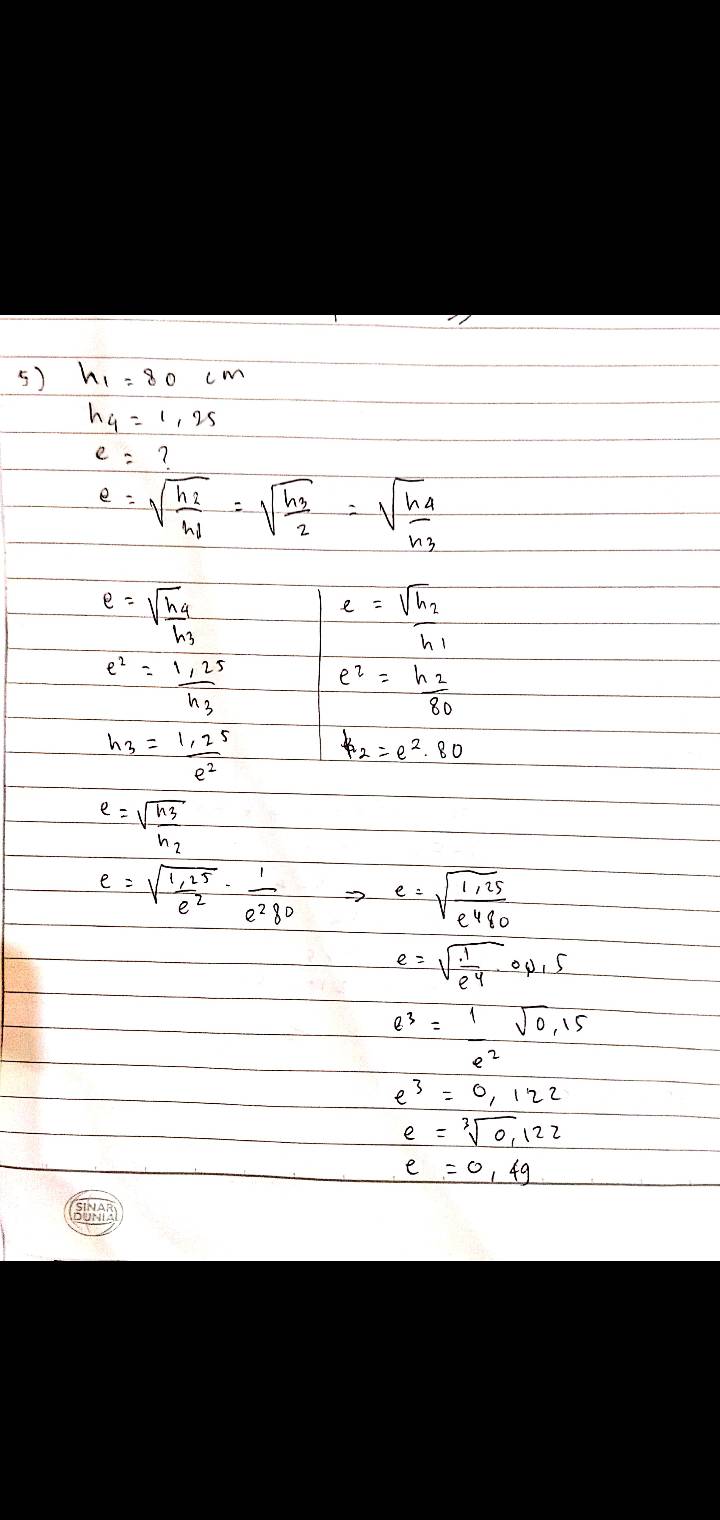 5) h1 = 80 cm
h4 = 1,25
e = ?
e = √h2/h1 = √h3/2 = √h4/h3
e = √h4/h3
e² = 1,25/h3
h3 = 1,25/e²
e = √h2/h1
e² = h2/80
h2 = e². 80
e = √h3/h2
e = √1,25/e² . 1/e²80 ⇒ e = √1,25/e⁴80
e = √1/e⁴ .
e³ = 1/e² √0,15
e³ = 0,122
e = ³√0,122
e = 0,49
SINAR
DUNIA